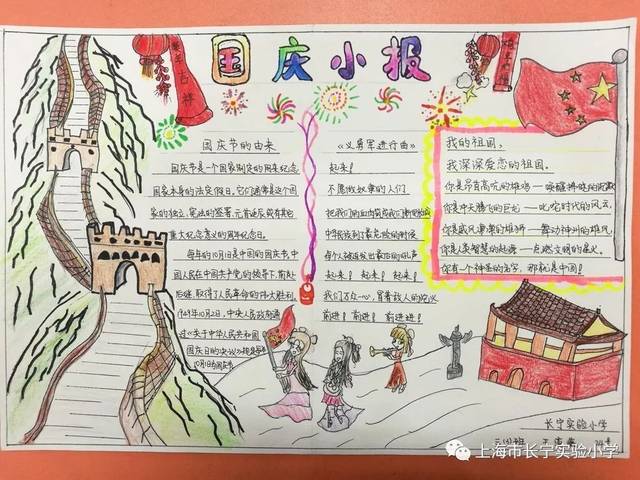 国庆小报
国庆节的由来
国庆节是一个国家制定的用来纪念
国家本身的法定假日。它们通常是这个国
家的独立、宪法的签署、元首诞辰或其他
重大纪念意义的周年纪念日。
每年的10月1日是中国的国庆节,中
国人民在中国共产党的领导下,前赴
后继,取得了人民革命的伟大胜利。
1949年10月2日,中央人民政府通
过《关于中华人民共和国
国庆日的决议》
10月1日为国庆节
《义勇军进行曲》
起来!
不愿做奴隶的人们
把我们的血肉筑成我们新的长城
中华民族到了最危险的时候
每个人被迫发出最后的吼声
起来! 起来! 起来!
我们万众一心,冒着敌人的炮火
前进! 前进! 前进进!
我的祖国,
我深深爱恋的祖国。
你是昂首高吭的雄鸡—唤醒拂晓的沉默
你是冲天腾飞的巨龙—叱咤时代的风云,
你是威风凛凛的雄狮—舞动神州的雄风,
你是人类智慧的起源—点燃文明的星火。
你有个神圣的名字,那就是中国!
长宁实验小学
上海市长宁实验小学